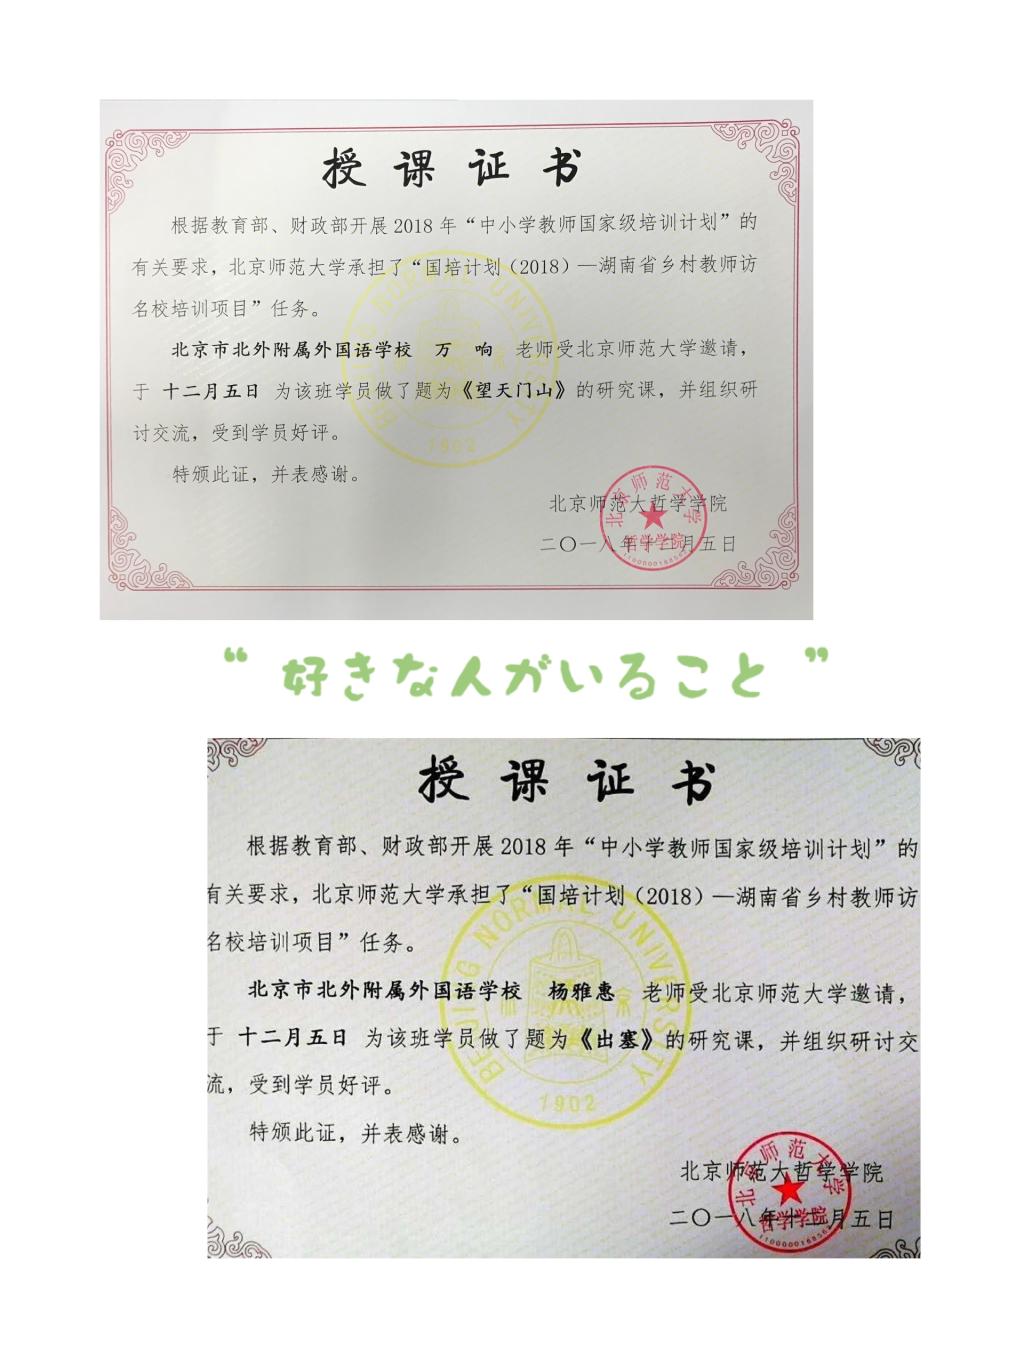 授课证书
根据教育部、财政部开展2018年“中小学教师国家级培训计划”的
有关要求，北京师范大学承担了“国培计划（2018）—湖南省乡村教师访
名校培训项目”任务。
北京市北外附属外国语学校 万 响 老师受北京师范大学邀请，
于 十二月五日 为该班学员做了题为《望天门山》的研究课，并组织研
讨交流，受到学员好评。
特颁此证，并表感谢。
BEIJING NORMAL UNIVERSITY
1902
北京师范大哲学学院
二〇一八年十二月五日
北京师范大学
哲学学院
“ 好きな人がいること ”
授课证书
根据教育部、财政部开展2018年“中小学教师国家级培训计划”的
有关要求，北京师范大学承担了“国培计划（2018）—湖南省乡村教师访
名校培训项目”任务。
北京市北外附属外国语学校 杨雅惠 老师受北京师范大学邀请，
于 十二月五日 为该班学员做了题为《出塞》的研究课，并组织研讨交
流，受到学员好评。
特颁此证，并表感谢。
BEIJING NORMAL UNIVERSITY
1902
北京师范大哲学学院
二〇一八年十二月五日
北京师范大学
哲学学院